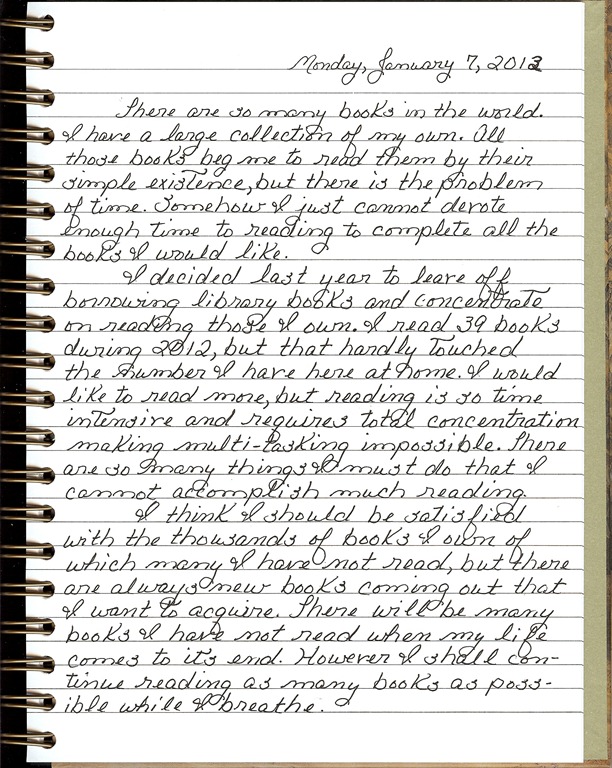 Monday, January 7, 2013
There are so many books in the world.
I have a large collection of my own. All
those books beg me to read them by their
simple existence, but there is the problem
of time. Somehow I just cannot devote
enough time to reading to complete all the
books I would like.
I decided last year to leave off
borrowing library books and concentrate
on reading those I own. I read 39 books
during 2012, but that hardly touched
the number I have here at home. I would
like to read more, but reading is so time
intensive and requires total concentration
making multi-tasking impossible. There
are so many things I must do that I
cannot accomplish much reading.
I think I should be satisfied
with the thousands of books I own of
which many I have not read, but there
are always new books coming out that
I want to acquire. There will be many
books I have not read when my life
comes to it's end. However I shall con-
tinue reading as many books as poss-
ible while I breathe.